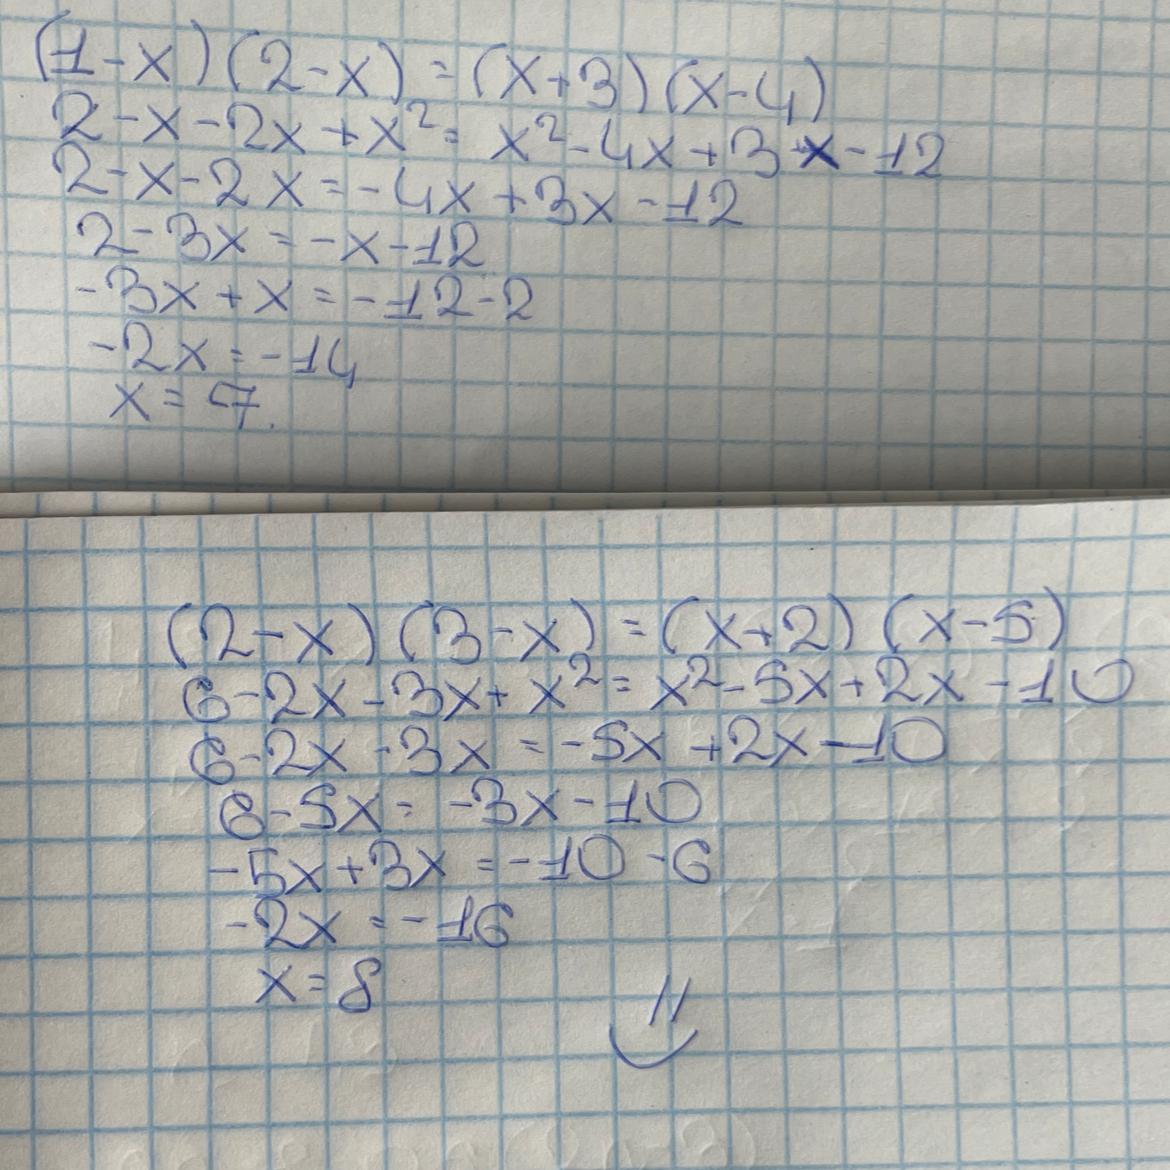 (1-x)(2-x)=(x+3)(x-4)
2-x-2x+x²=x²-4x+3x-12
2-x-2x=-4x+3x-12
2-3x=-x-12
-3x+x=-12-2
-2x=-14
x=7.
(2-x)(3-x)=(x+2)(x-5)
6-2x-3x+x²=x²-5x+2x-10
6-2x-3x=-5x+2x-10
6-5x=-3x-10
-5x+3x=-10-6
-2x=-16
x=8